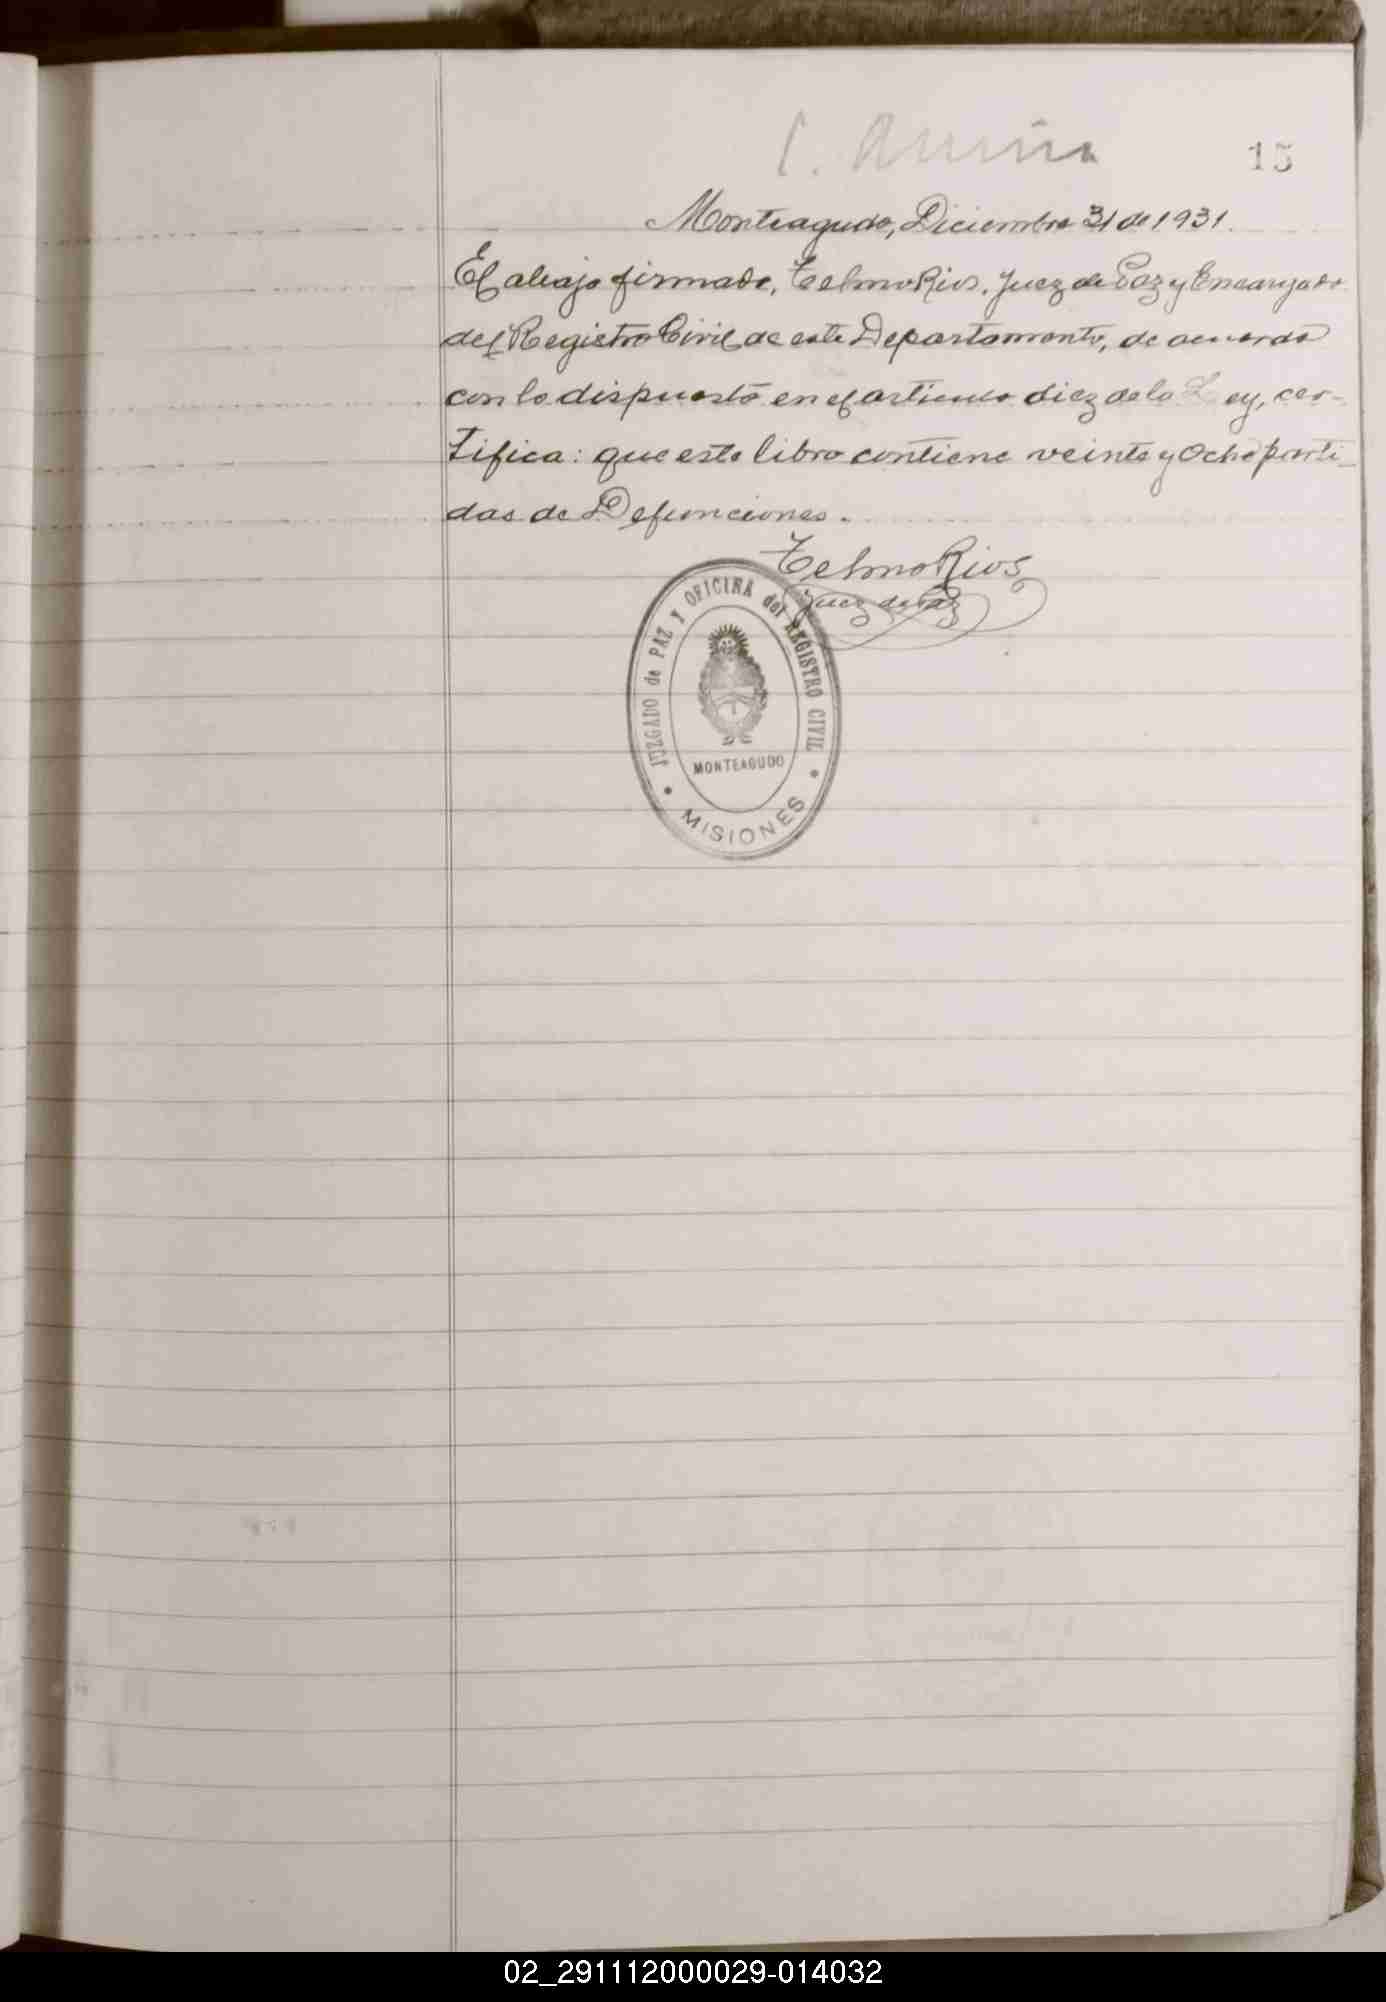 15
Monteagudo, Diciembre 31 de 1931.
El abajo firmado, Telmo Rios, Juez de Paz y Encargado
del Registro Civil de este Departamento, de acuerdo
con lo dispuesto en el articulo diez de la Ley, cer-
tifica: que este libro contiene veinte y ocho parti-
das de Defunciones.
Telmo Rios
Juez de Paz
JUZGADO de PAZ Y OFICINA del REGISTRO CIVIL
MONTEAGUDO
MISIONES
02_291112000029-014032